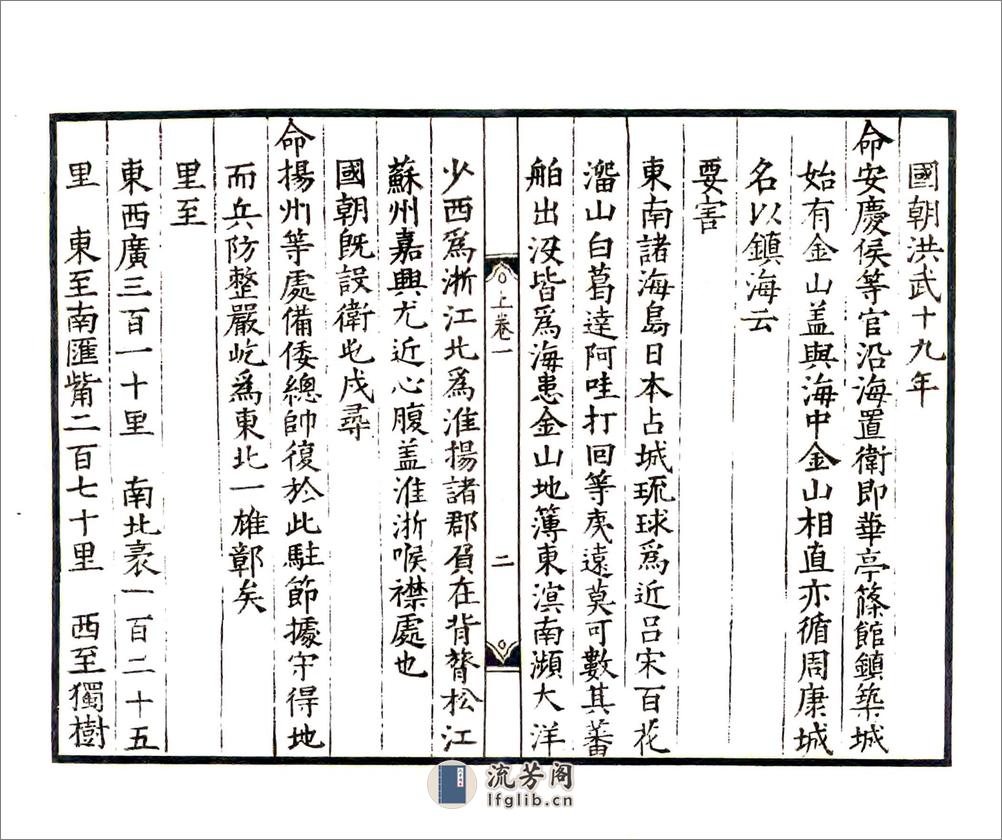 國朝洪武十九年
命安慶侯等官沿海置衛即華亭篠館鎮築城
始有金山盖與海中金山相直亦循周康城
名以鎮海云
要害
東南諸海島日本占城琉球為近吕宋百花
溜山白葛達阿哇打回等夷遠莫可數其蕃
舶出没皆為海患金山地簿東溟南瀕大洋
上卷一
二
少西為浙江北為淮揚諸郡屓在背膂松江
蘇州嘉興尤近心腹盖淮浙喉襟處也
國朝旣設衛屯戍尋
命揚州等處備倭總帥復於此駐節據守得地
而兵防整嚴屹為東北一雄鄣矣
里至
東西廣三百一十里 南北袤一百二十五
里 東至南匯觜二百七十里 西至獨樹
流芳阁
lfglib.cn